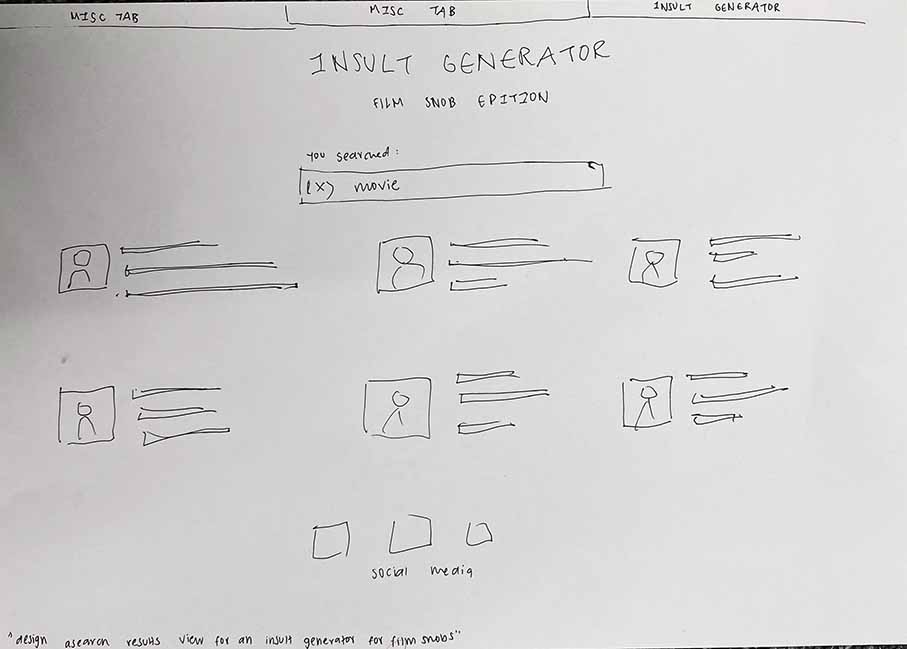 MISC TAB
MISC TAB
INSULT GENERATOR
INSULT GENERATOR
FILM SNOB EDITION
You searched:
(X) movie
social media
"design asearch results view for an insult generator for film snobs"